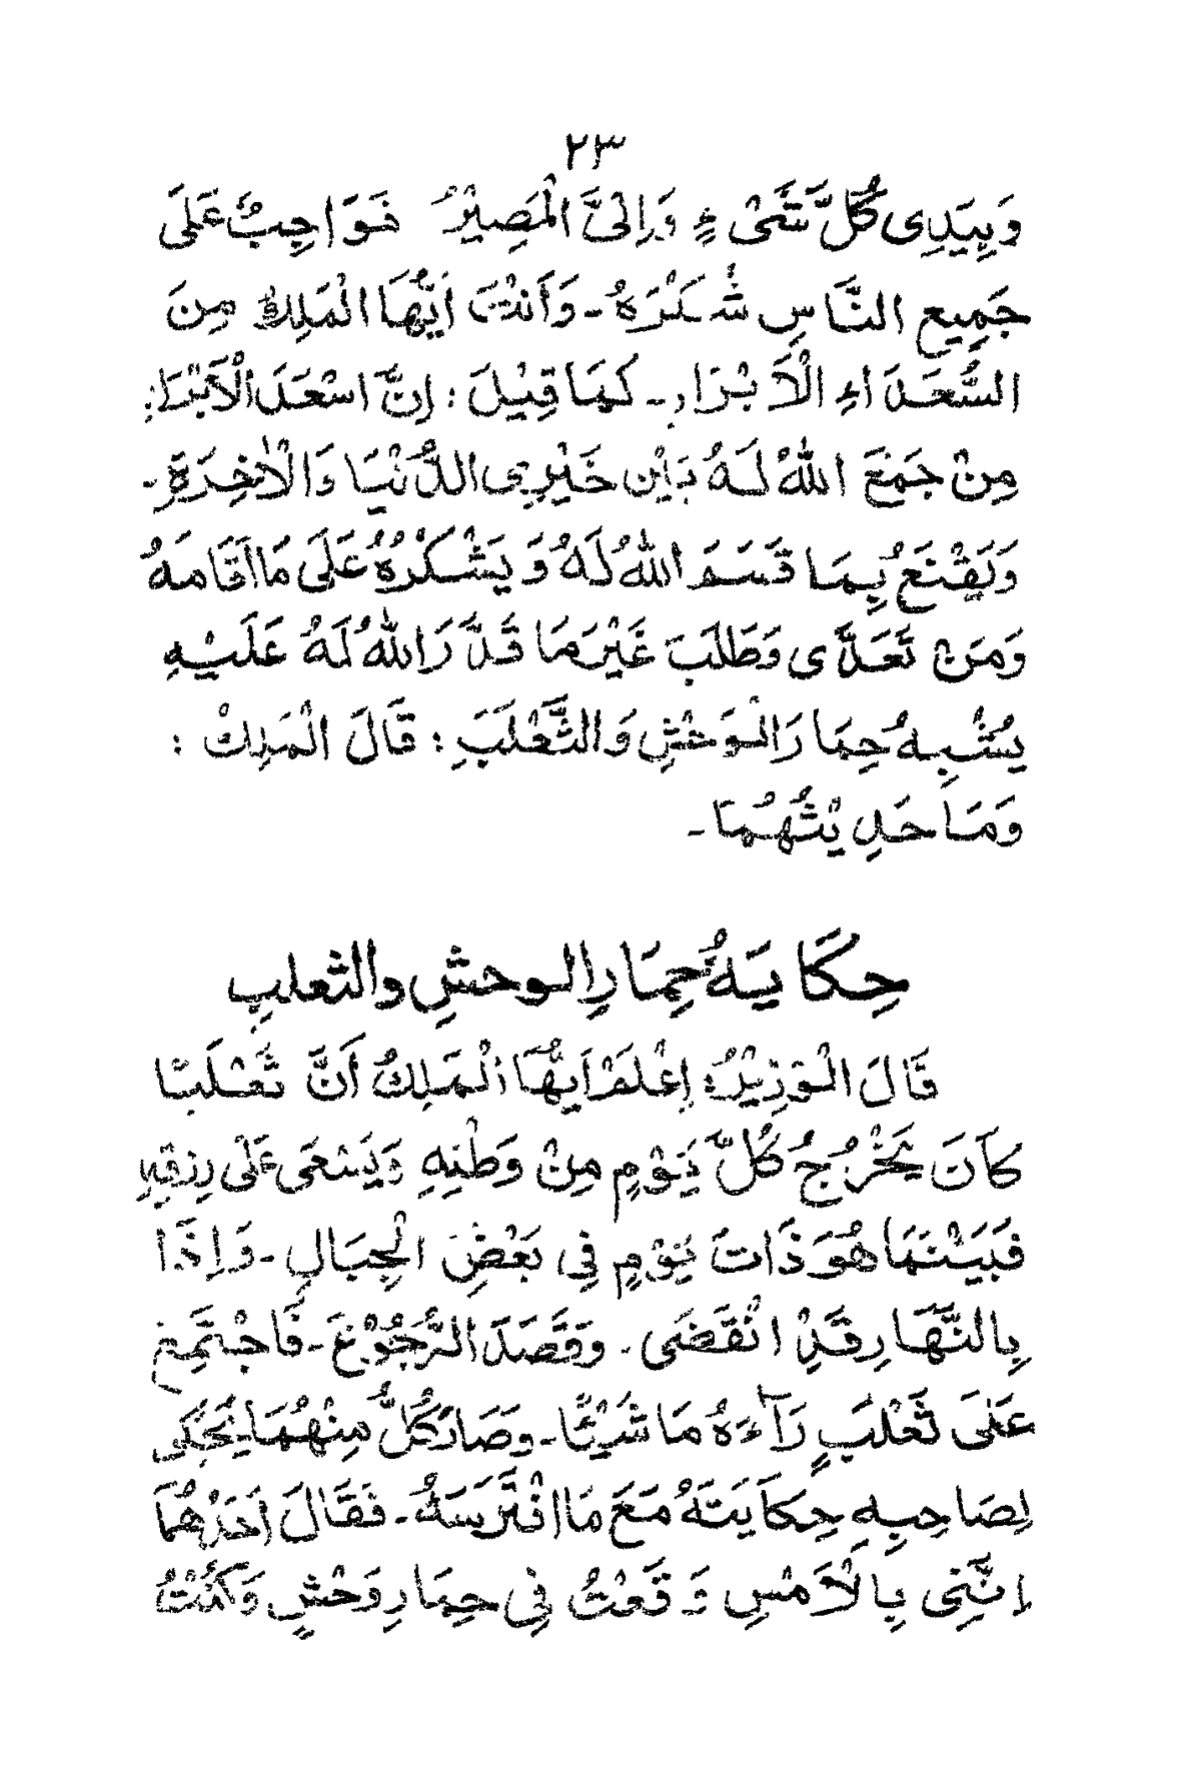 ٢٣
وَبِيَدِى كُلَّ شَىْءٍ وَاِلَىَّ الْمَصِيْرُ فَوَاجِبٌ عَلَى
جَمِيعِ النَّاسِ شَكَرَهُ - وَأَنْتَ اَيُّهَا الْمَلِكُ مِنَ
السُّعَدَاءِ الْاَبْرَارِ - كَمَا قِيْلَ : اِنَّ اسْعَدَ الْاَبْرَارِ
مِنْ جَمَعَ اللهُ لَهُ بَيْنَ خَيْرِى الدُّنْيَا وَالْاٰخِرَةِ -
وَيَقْنَعُ بِمَا قَسَمَ اللهُ لَهُ وَيَشْكُرُهُ عَلَى مَا اَقَامَهُ
وَمَنْ تَعَدَّى وَطَلَبَ غَيْرَ مَا قَدَّرَ اللهُ لَهُ عَلَيْهِ
يُشْبِهُ حِمَارَ الْوَحْشِ وَالثَّعْلَبَ : قَالَ الْمَلِكْ :
وَمَا حَدِيْثُهُمَا -
حِكَايَةُ حِمَارِ الوحشِ والثعلبِ
قَالَ الْوَزِيْرُ : اِعْلَمْ اَيُّهَا الْمَلِكُ أَنَّ ثَعْلَبًا
كَانَ يَخْرُجُ كُلَّ يَوْمٍ مِنْ وَطْنِهِ وَيَسْعَى عَلَى رِزْقِهِ
فَبَيْنَمَا هُوَ ذَاتَ يَوْمٍ فِى بَعْضِ الْجِبَالِ - وَاِذَا
بِالنَّهَارِ قَدِ انْقَضَى - وَقَصَدَ الرُّجُوْعَ - فَاجْتَمِعَ
عَلٰى ثَعْلَبٍ رَآءَهُ مَاشَيْئًا - وصَارَ كُلُّ مِنْهُمَا يَحْكِى
لِصَاحِبِهِ حِكَايَتَهُ مَعَ مَا افْتَرَسَهُ - فَقَالَ اَحَدُهُمَا
اِنَّنِى بِالْاَمْسِ وَقَعْتُ فِى حِمَارِ وَحْشٍ وَكُنْتُ